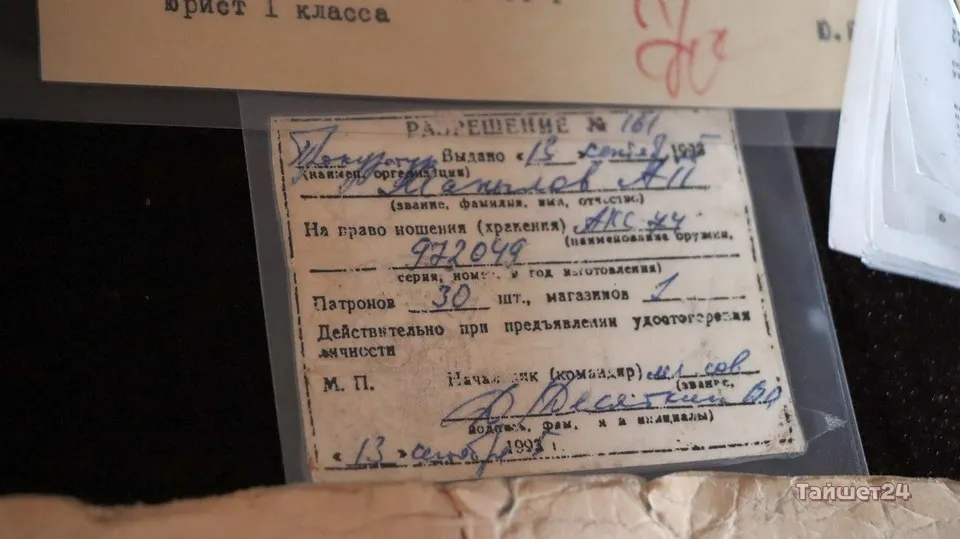 юрист 1 класса
Ю.
РАЗРЕШЕНИЕ № 161
Выдано «13» 199
(наимен. организации)
А П
(звание, фамилия, имя, отчество)
На право ношения (хранения) АКС 74
(наименование оружия,
972049
серия, номер, и год изготовления)
Патронов 30 шт., магазинов 1
Действительно при предъявлении удостоверения
личности
М. П. Начальник (командир) мл сов
(звание,
Десяткин
подпись, фам. я и инициалы)
«13» сентября 199 г
6
Тайшет24